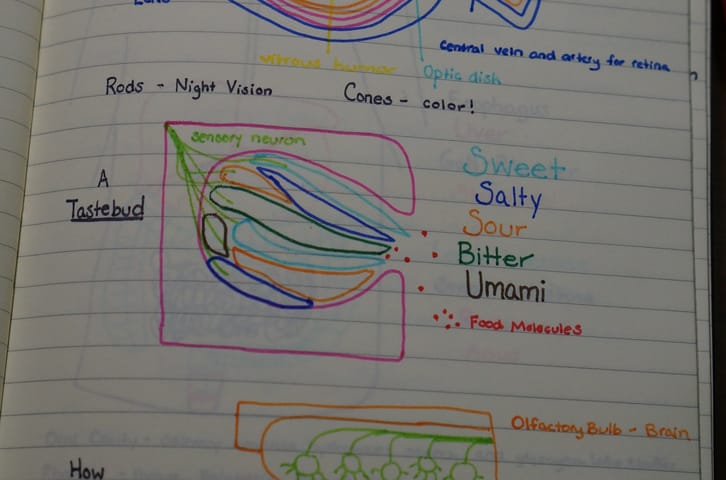 Central vein and artery for retina
vitrous humor
Optic dish
Rods - Night Vision
Cones - color!
sensory neuron
A
Tastebud
Sweet
Salty
Sour
Bitter
Umami
Food Molecules
Olfactory Bulb - Brain
How